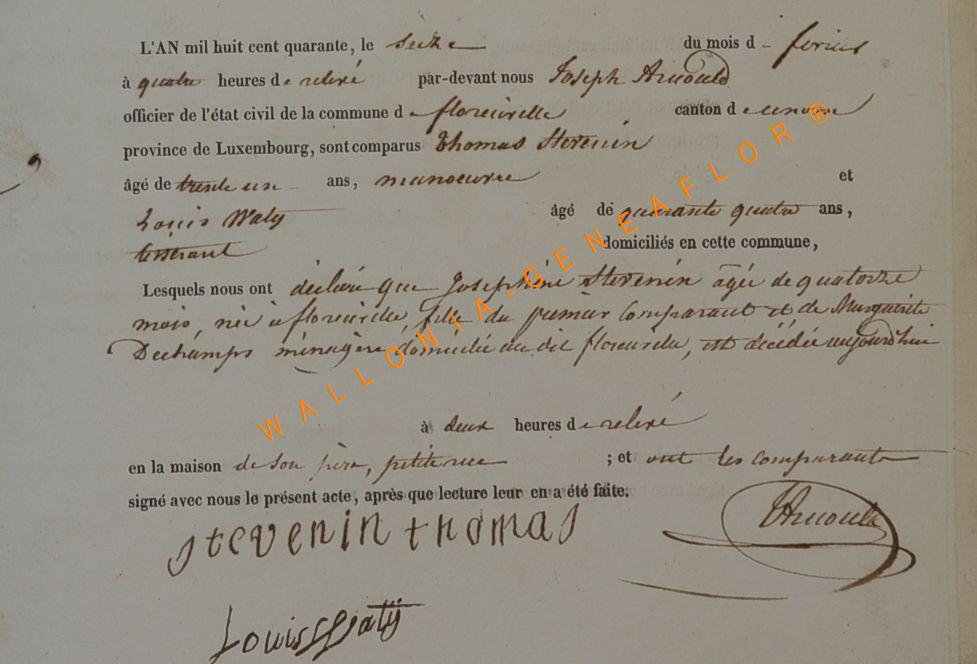 L'AN mil huit cent quarante, le seize du mois de fevrier
à quatre heures de relevé par-devant nous Joseph Arnould
officier de l'état civil de la commune de florenville canton de
province de Luxembourg, sont comparus Thomas Stevenin
âgé de trente un ans, manoeuvre et
Louis Waty âgé de quarante quatre ans,
tisserant domiciliés en cette commune,
Lesquels nous ont déclaré que Josephine Stevenin âgée de quatorze
mois, née à florenville, fille du premier Comparant et de Marguerite
Dechamps ménagère, domiciliée au dit florenville, est décédée aujourd'hui
à deux heures de relevé
en la maison de son père, petite rue ; et ont les comparants
signé avec nous le présent acte, après que lecture leur en a été faite.
stevenin thomas
JArnould
Louis Waty
WALLONIA-GENEAFLOR ®